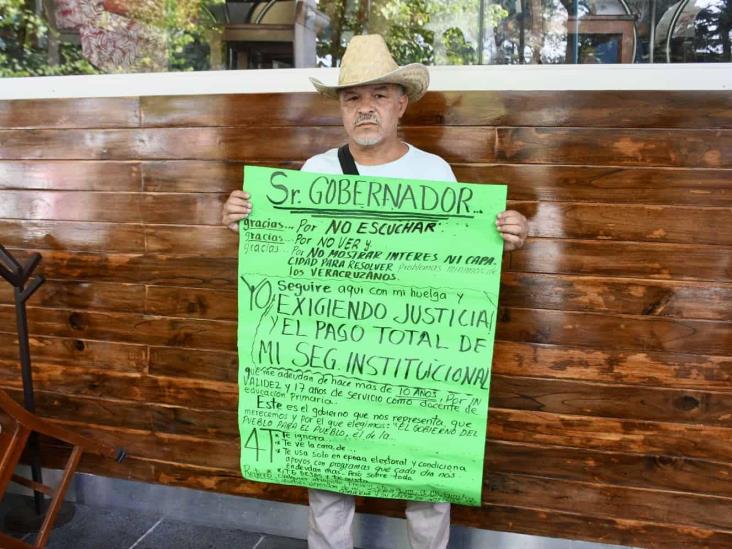 Sr. GOBERNADOR...
gracias... Por NO ESCUCHAR.
gracias... Por NO VER y
gracias... Por NO MOSTRAR INTERES NI CAPA-
CIDAD PARA RESOLVER problemas minimos de
los VERACRUZANOS.
YO Seguire aqui con mi huelga y
EXIGIENDO JUSTICIA
Y EL PAGO TOTAL DE
MI SEG. INSTITUCIONAL
que me adeudan de hace más de 16 AÑOS, Por IN
VALIDEZ y 17 años de servicio como docente de
educación primaria.
Este es el gobierno que nos representa, que
merecemos y por el que elegimos: "EL GOBIERNO DEL
PUEBLO PARA EL PUEBLO", él de la...
4T
• Te ignora...
• Te ve la cara, de...
• Te usa solo en epoca electoral y condiciona
apoyos con programas que cada dia nos
endeudan más. Pero sobre todo.